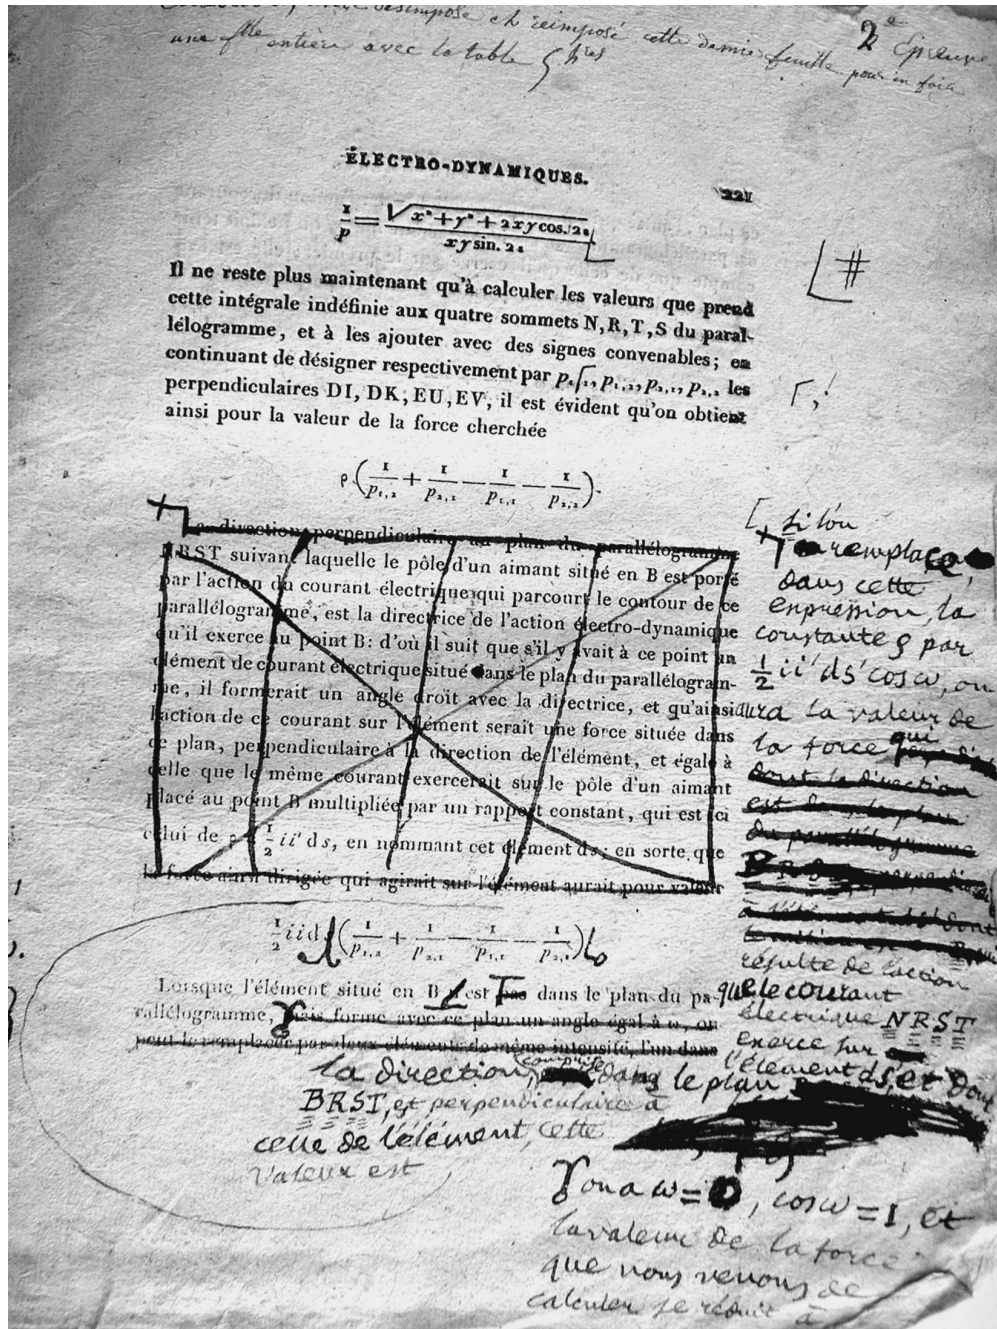 désimposé et reimposé cette demie feuille pour en faire
une flle entière avec la table
2e Épreuve
ÉLECTRO-DYNAMIQUES. 221
1/p = √(x²+y²+2xycos.2ε) / xysin.2ε
Il ne reste plus maintenant qu'à calculer les valeurs que prend
cette intégrale indéfinie aux quatre sommets N,R,T,S du paral-
lélogramme, et à les ajouter avec des signes convenables; en
continuant de désigner respectivement par p₁,₂, p₁,₁, p₂,₁, p₂,₂ les
perpendiculaires DI, DK, EU, EV, il est évident qu'on obtient
ainsi pour la valeur de la force cherchée
ρ(1/p₁,₂ + 1/p₂,₁ − 1/p₁,₁ − 1/p₂,₂).
La direction perpendiculaire au plan du parallélogramme
NRST suivant laquelle le pôle d'un aimant situé en B est porté
par l'action du courant électrique qui parcourt le contour de ce
parallélogramme, est la directrice de l'action électro-dynamique
qu'il exerce au point B: d'où il suit que s'il y avait à ce point un
élément de courant électrique situé dans le plan du parallélogram-
me, il formerait un angle droit avec la directrice, et qu'ainsi
l'action de ce courant sur l'élément serait une force située dans
ce plan, perpendiculaire à la direction de l'élément, et égale à
celle que le même courant exercerait sur le pôle d'un aimant
placé au point B multipliée par un rapport constant, qui est ici
celui de ρ à ½ii'ds, en nommant cet élément ds; en sorte que
la force ainsi dirigée qui agirait sur l'élément aurait pour valeur
½iids(1/p₁,₂ + 1/p₂,₁ − 1/p₁,₁ − 1/p₂,₂)
Lorsque l'élément situé en B n'est pas dans le plan du pa-
rallélogramme, mais forme avec ce plan un angle égal à ω, on
peut le remplacer par deux éléments de même intensité, l'un dans
si l'on
remplace,
dans cette
expression, la
constante ρ par
½ii'ds'cosω, on
aura la valeur de
la force qui
dont la direction
est dans le plan
du parallélogramme
résulte de l'action
que le courant
électrique NRST
exerce sur
l'élément ds', et dont
la direction, comprise dans le plan
BRST, est perpendiculaire à
celle de l'élément, cette
valeur est
on a ω=0, cosω=1, et
la valeur de la force
que nous venons de
calculer se réduit à